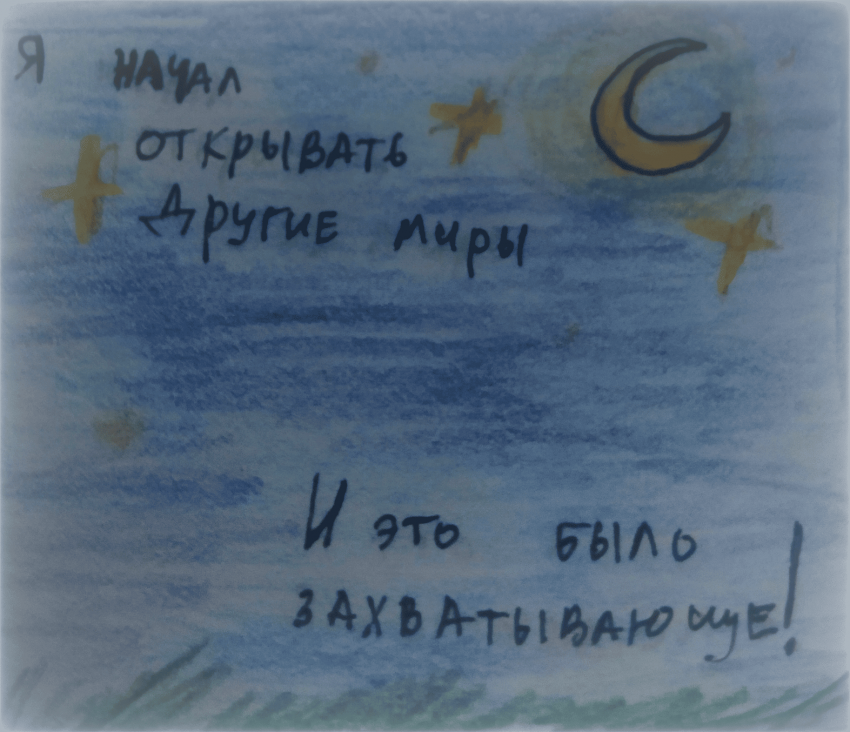 Я НАЧАЛ
ОТКРЫВАТЬ
ДРУГИЕ МИРЫ
И ЭТО БЫЛО
ЗАХВАТЫВАЮЩЕ!